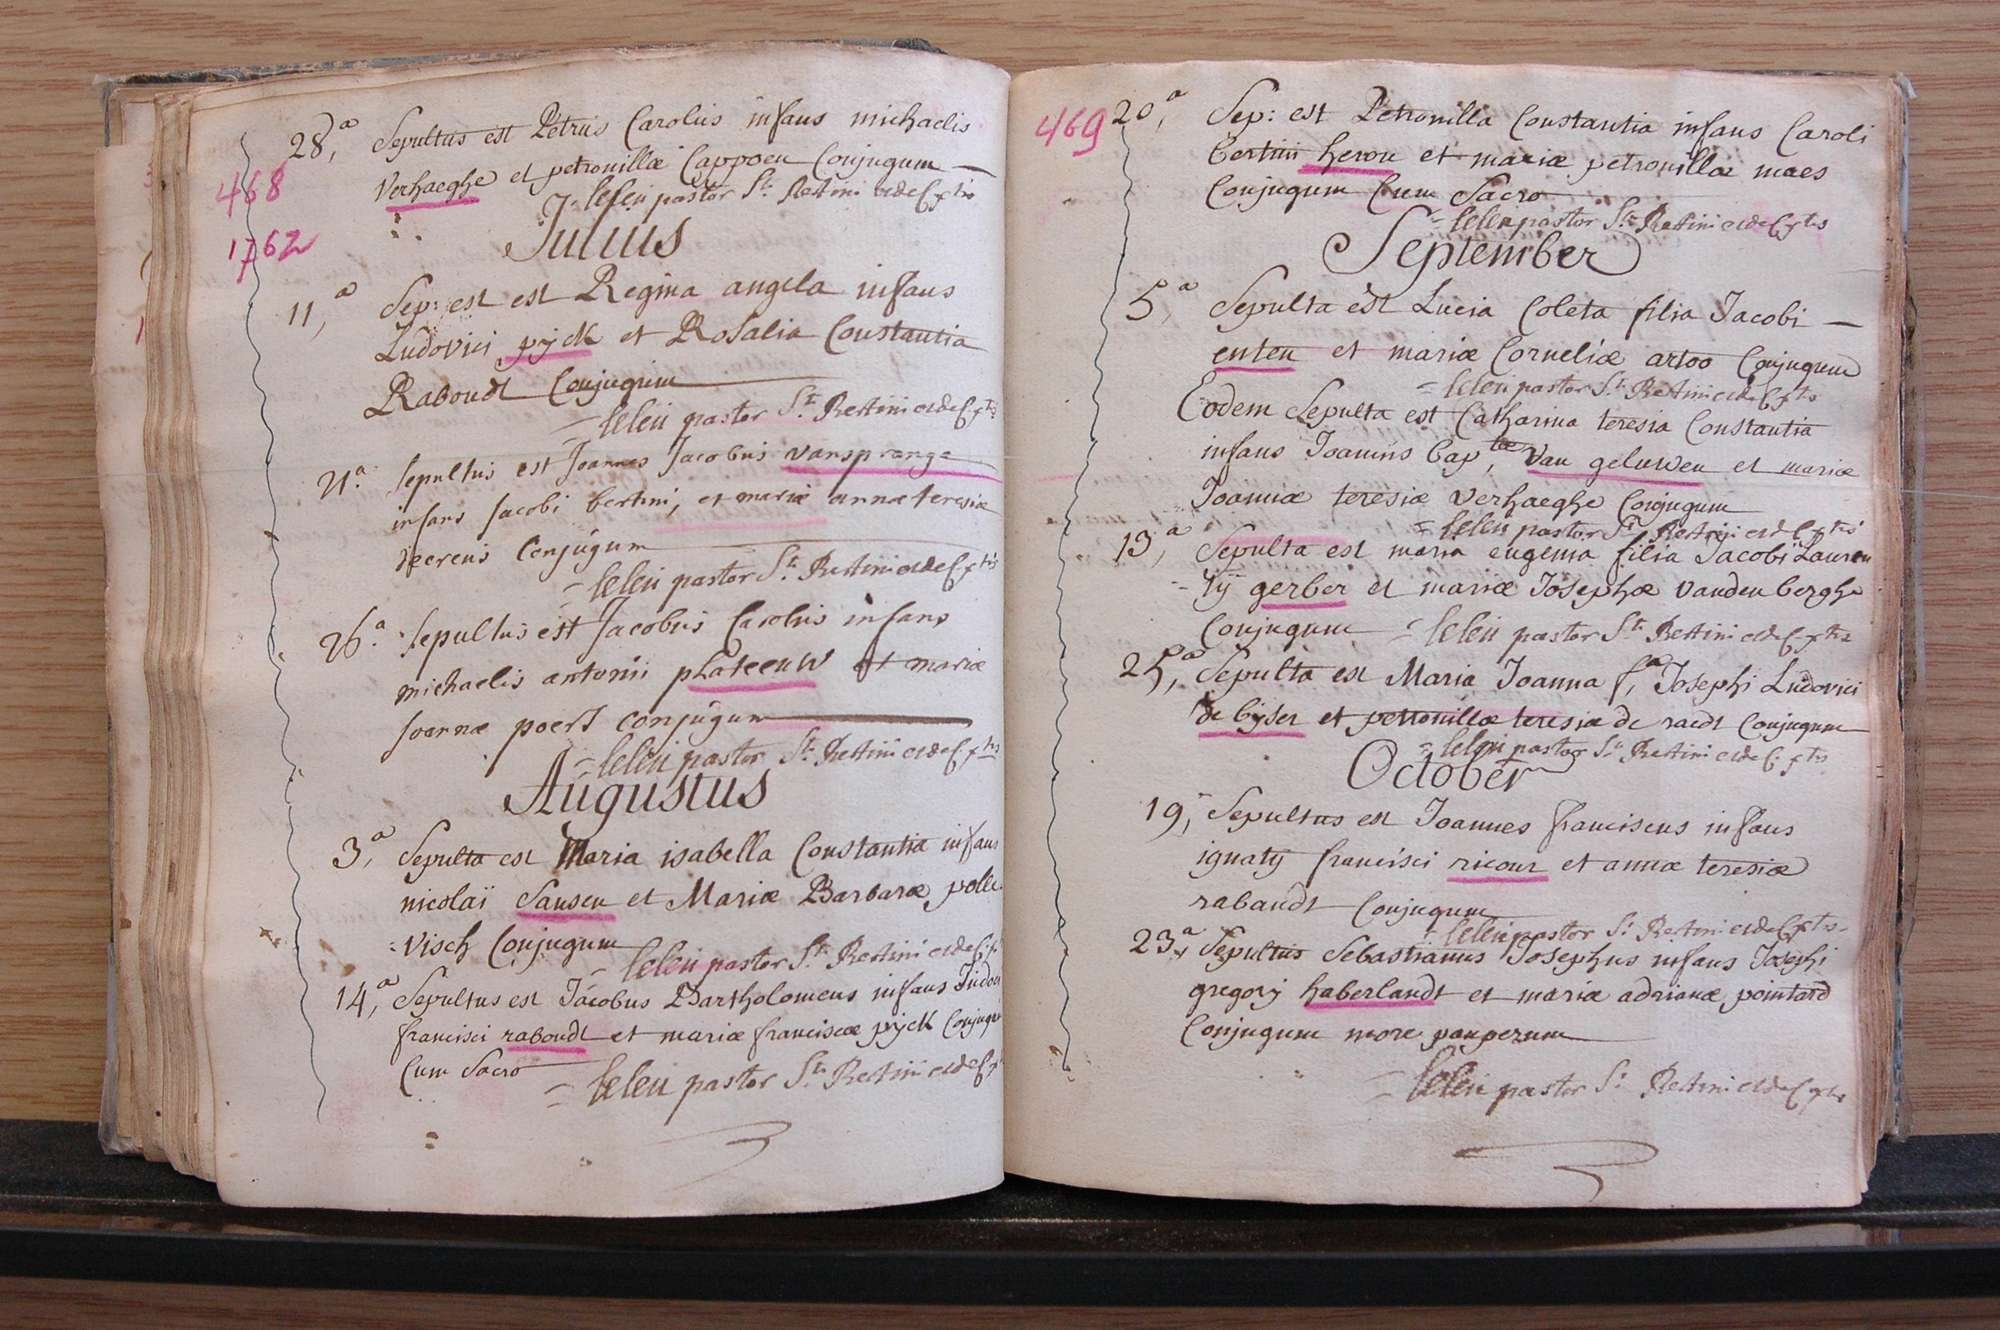 468
1762
28,a Sepultus est Petrus Carolus infans michaelis
verhaeghe et petronillæ Cappoen Conjugum
= lelen pastor Sti
Julius
11,a Sep: est est Regina angela infans
Ludovici pyck et Rosalia Constantia
Raboudt Conjugum
= lelen pastor Sti
21.a sepultus est Joannes Jacobus vansprange
infans Jacobi bertini, et mariæ annæ teresiæ
Conjugum
= lelen pastor Sti
26.a sepultus est Jacobus Carolus infans
michaelis antonii plateeuw et mariæ
Joannæ poert conjugum
= lelen pastor Sti
Augustus
3,a Sepulta est Maria isabella Constantia infans
nicolaï Sansen et Mariæ Barbaræ polle
=visch Conjugum
= lelen pastor Sti
14,a Sepultus est Jacobus Bartholomeus infans
francisci raboudt et mariæ franciscæ pyck Conjugu
Cum Sacro
= lelen pastor Sti
469
20,a Sep: est Petronilla Constantia infans Caroli
bertini herou et mariæ petronillæ maes
Conjugum Cum Sacro
= lelen pastor Sti
September
5,a Sepulta est Lucia Coleta filia Jacobi
enten et mariæ Corneliæ artoo Conjugum
= lelen pastor Sti
Eodem Sepulta est Catharina teresia Constantia
infans Joannis bap,tæ van geluwen et mariæ
Joannæ teresiæ verhaeghe Conjugum
= lelen pastor Sti
13,a Sepulta est maria eugenia filia Jacobi Lauren
-tij gerber et mariæ Josephæ vanden berghe
Conjugum = lelen pastor Sti
25,a Sepulta est Maria Joanna f,a Josephi Ludovici
de byser et petronillæ teresiæ de raedt Conjugum
= lelen pastor Sti
October
19, Sepultus est Joannes franciscus infans
ignatij francisci ricour et annæ teresiæ
rabaudt Conjugum
= lelen pastor Sti
23,a Sepultus Sebastianus Josephus infans Josephi
gregorij haberlandt et mariæ adrianæ pointard
Conjugum more pauperum
= lelen pastor Sti